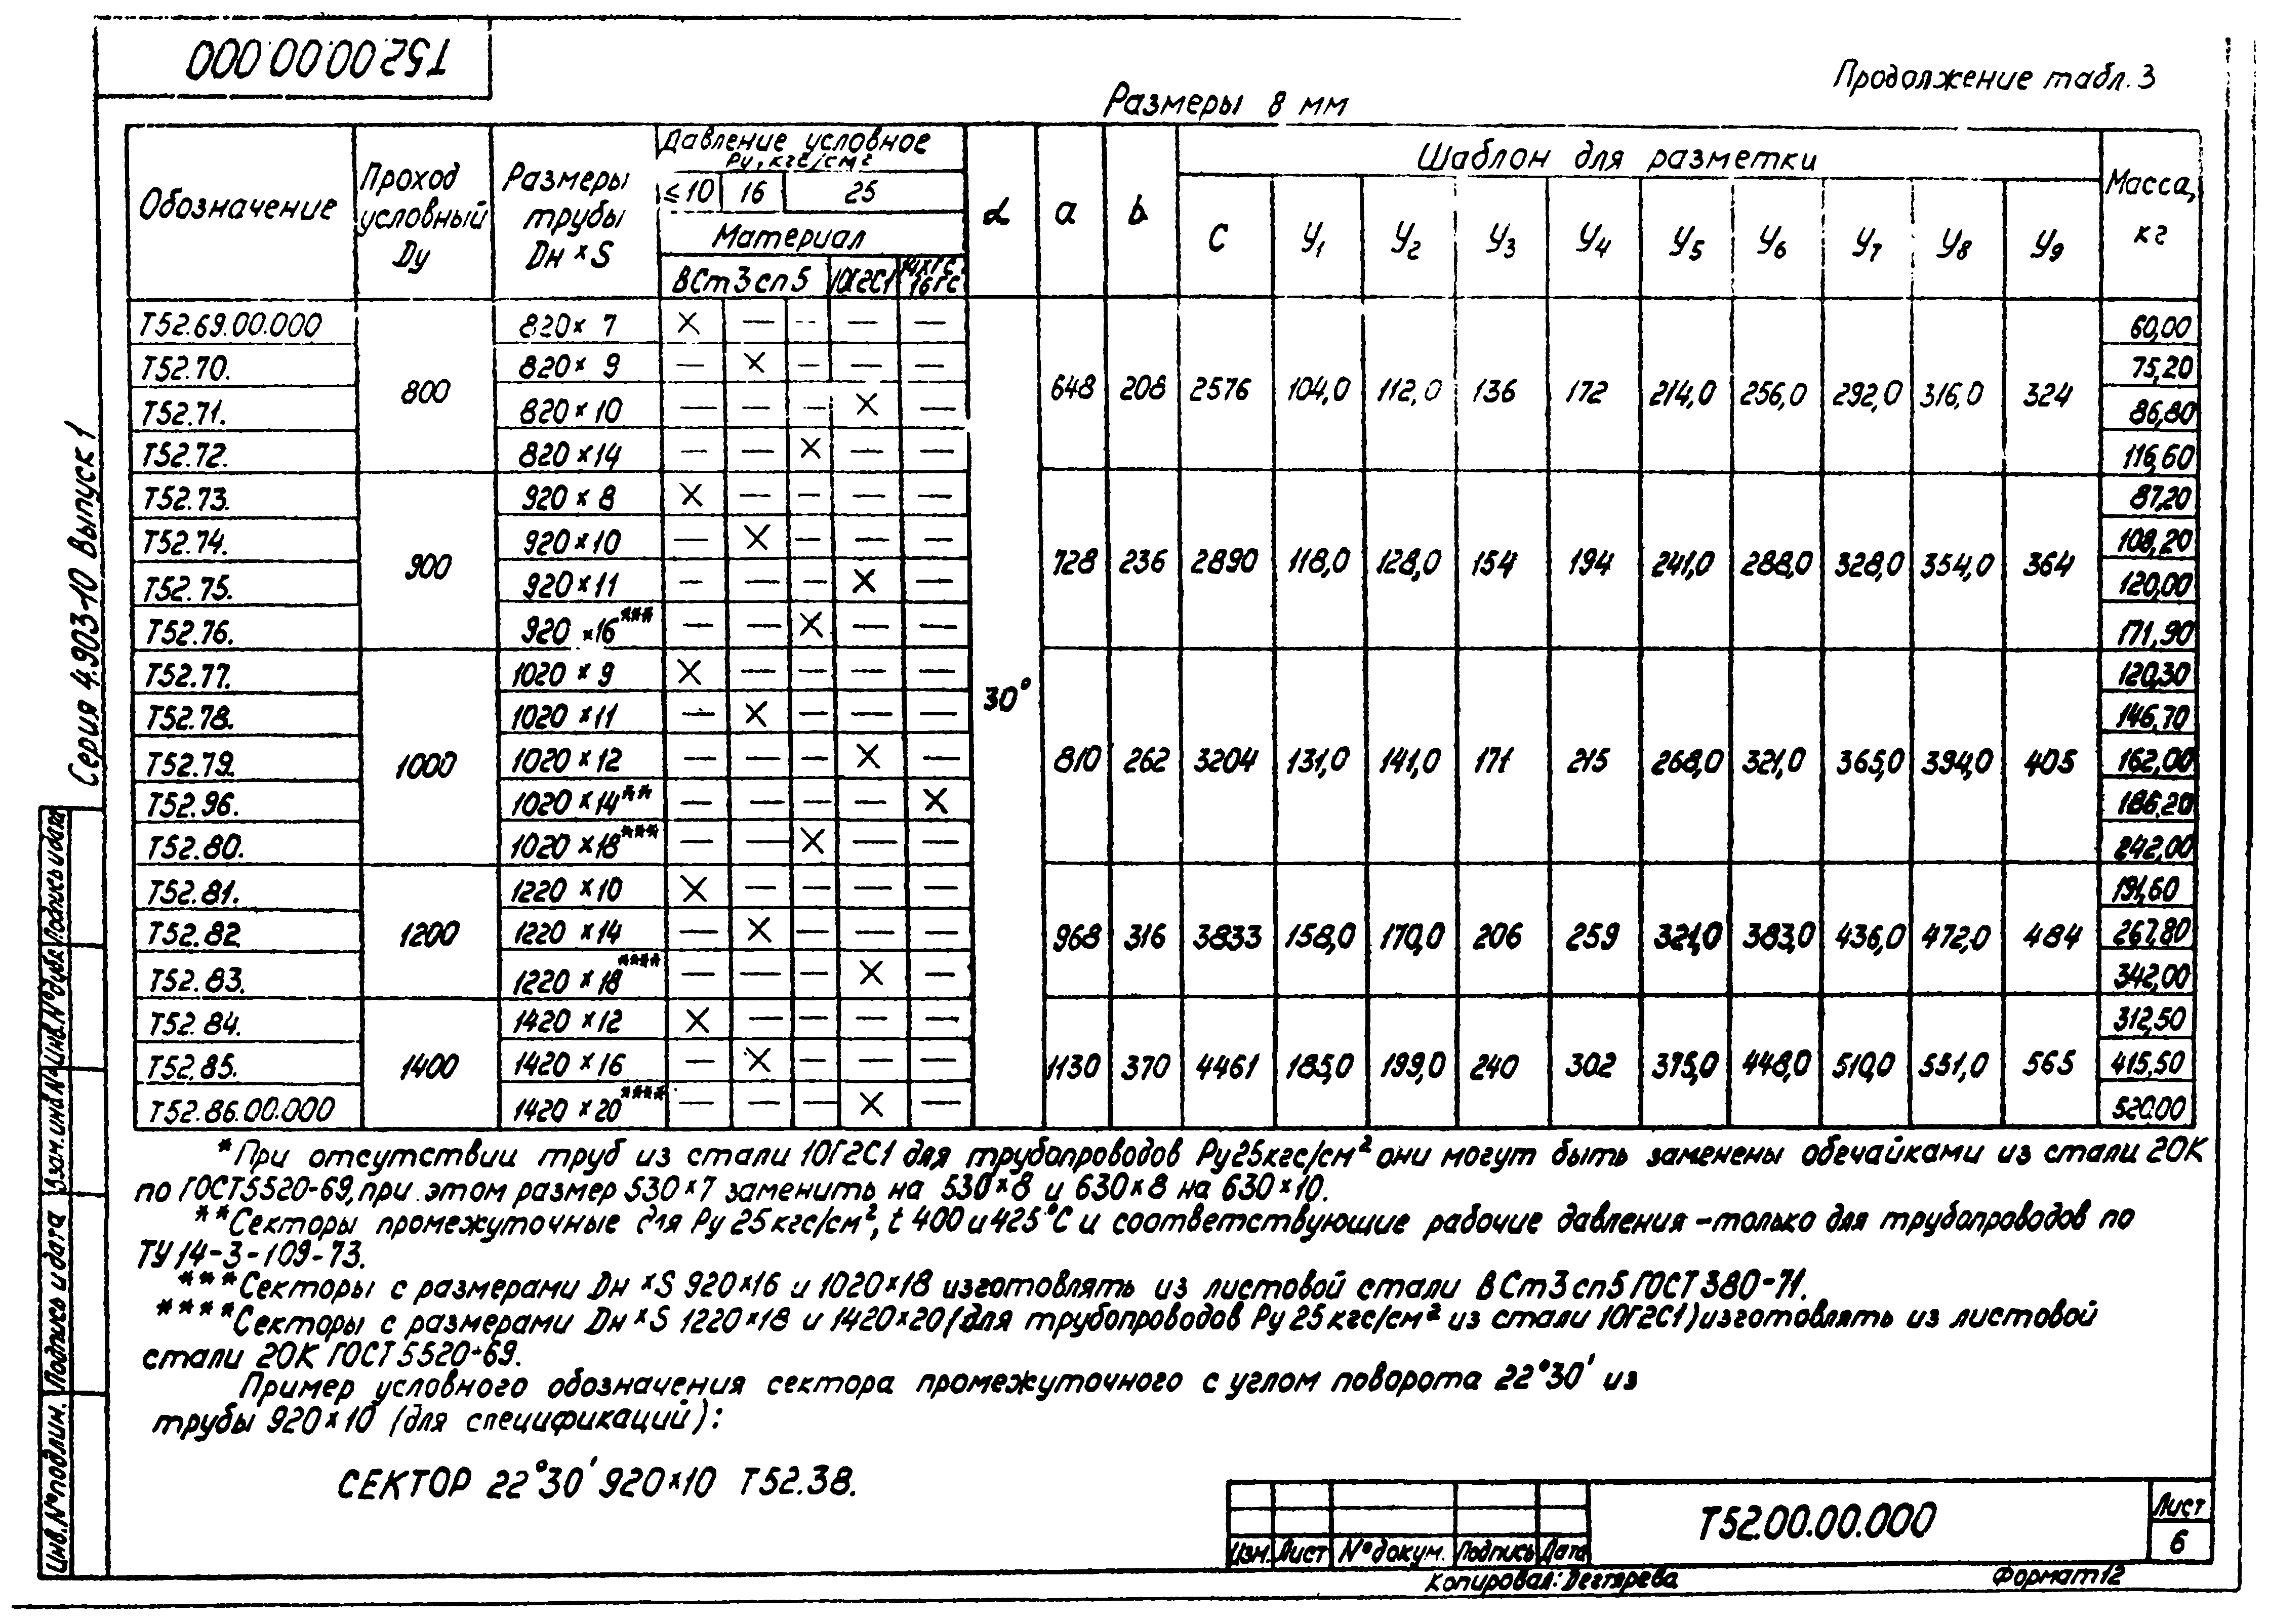 Т52.00.00.000
Продолжение табл. 3
Размеры в мм
Обозначение
Проход условный Dу
Размеры трубы Dн × S
Давление условное
Ру, кгс/см²
≤10 16 25
Материал
ВСт3сп5 10Г2С1 14ХГС 16ГС
α a b
Шаблон для разметки
C У1 У2 У3 У4 У5 У6 У7 У8 У9
Масса, кг
Т52.69.00.000 800 820×7 × — — — — 30° 648 208 2576 104,0 112,0 136 172 214,0 256,0 292,0 316,0 324 60,00
Т52.70. 820×9 — × — — — 75,20
Т52.71. 820×10 — — — × — 86,80
Т52.72. 820×14 — — × — — 116,60
Т52.73. 900 920×8 × — — — — 728 236 2890 118,0 128,0 154 194 241,0 288,0 328,0 354,0 364 87,20
Т52.74. 920×10 — × — — — 108,20
Т52.75. 920×11 — — — × — 120,00
Т52.76. 920×16*** — — × — — 171,90
Т52.77. 1000 1020×9 × — — — — 810 262 3204 131,0 141,0 171 215 268,0 321,0 365,0 394,0 405 120,30
Т52.78. 1020×11 — × — — — 146,70
Т52.79. 1020×12 — — — × — 162,00
Т52.96. 1020×14** — — — — × 186,20
Т52.80. 1020×18*** — — × — — 242,00
Т52.81. 1200 1220×10 × — — — — 968 316 3833 158,0 170,0 206 259 321,0 383,0 436,0 472,0 484 191,60
Т52.82 1220×14 — × — — — 267,80
Т52.83. 1220×18**** — — — × — 342,00
Т52.84. 1400 1420×12 × — — — — 1130 370 4461 185,0 199,0 240 302 375,0 448,0 510,0 551,0 565 312,50
Т52.85. 1420×16 — × — — — 415,50
Т52.86.00.000 1420×20**** — — — × — 520.00
*При отсутствии труб из стали 10Г2С1 для трубопроводов Ру25кгс/см² они могут быть заменены обечайками из стали 20К
по ГОСТ5520-69, при этом размер 530×7 заменить на 530×8 и 630×8 на 630×10.
**Секторы промежуточные для Ру 25кгс/см², t 400 и 425°С и соответствующие рабочие давления - только для трубопроводов по
ТУ 14-3-109-73.
***Секторы с размерами Dн ×S 920×16 и 1020×18 изготовлять из листовой стали ВСт3сп5 ГОСТ 380-71.
****Секторы с размерами Dн×S 1220×18 и 1420×20 (для трубопроводов Ру 25кгс/см² из стали 10Г2С1) изготовлять из листовой
стали 20К ГОСТ 5520-69.
Пример условного обозначения сектора промежуточного с углом поворота 22°30′ из
трубы 920×10 (для спецификаций):
СЕКТОР 22°30′ 920×10 Т52.38.
Серия 4.903-10 Выпуск 1
Инв.№подлин. Подпись и дата Взам.инв№ Инв.№дубл. Подпись и дата
Изм. Лист №докум. Подпись Дата
Т52.00.00.000
Лист
6
Копировал: Дегтярева
Формат12